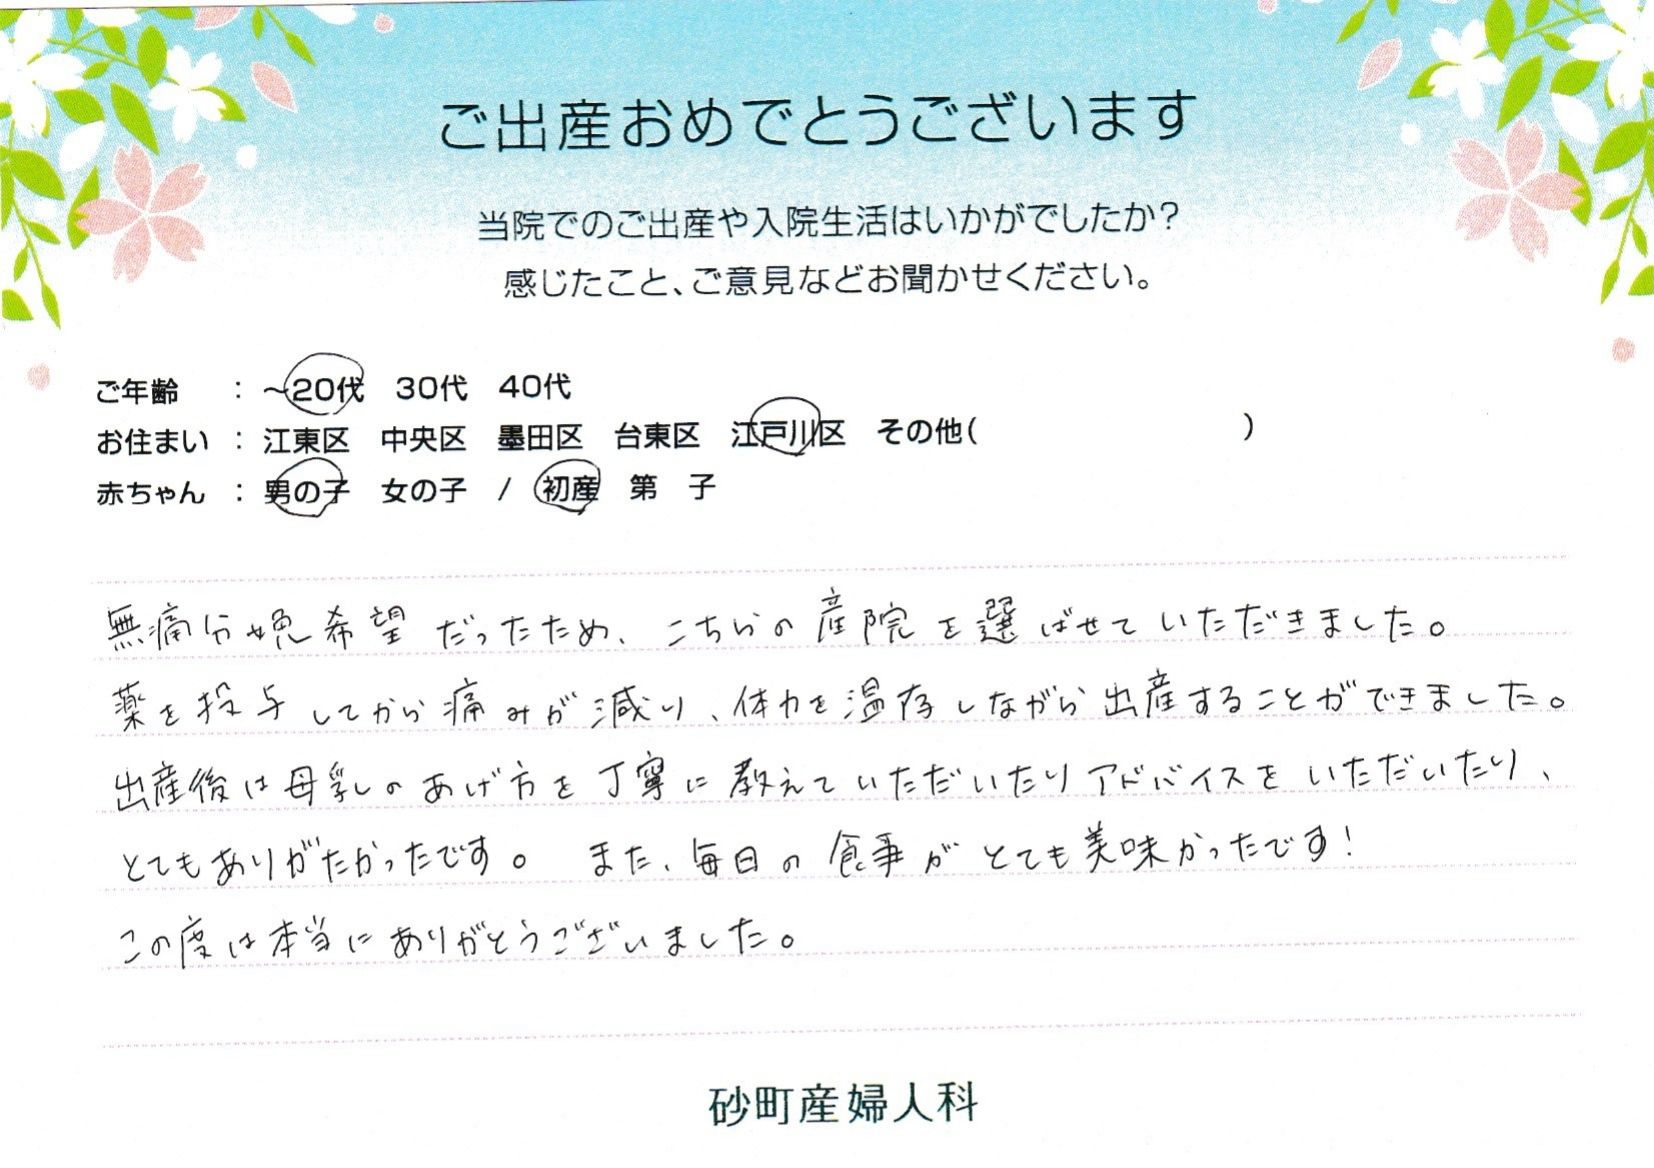 ご出産おめでとうございます
当院でのご出産や入院生活はいかがでしたか?
感じたこと、ご意見などお聞かせください。
ご年齢 : ～20代 30代 40代
お住まい : 江東区 中央区 墨田区 台東区 江戸川区 その他( )
赤ちゃん : 男の子 女の子 / 初産 第 子
無痛分娩希望だったため、こちらの産院を選ばせていただきました。
薬を投与してから痛みが減り、体力を温存しながら出産することができました。
出産後は母乳のあげ方を丁寧に教えていただいたりアドバイスをいただいたり、
とてもありがたかったです。 また、毎日の食事がとても美味かったです!
この度は本当にありがとうございました。
砂町産婦人科